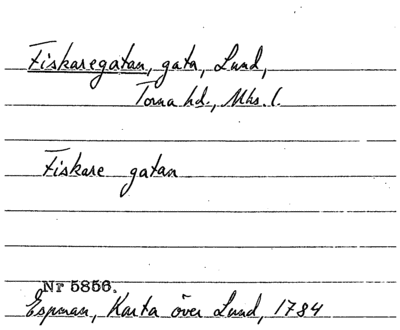 Fiskaregatan, gata, Lund,
Torna hd., Mhs. l.
Fiskare gatan
Nr 5856.
Espman, Karta över Lund, 1784